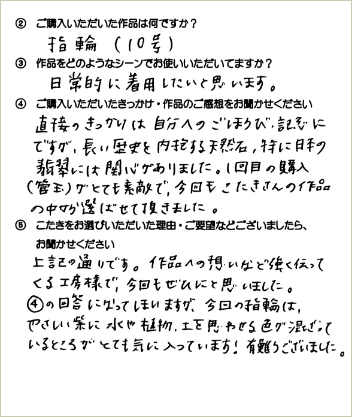 ② ご購入いただいた作品は何ですか？
指輪（10号）
③ 作品をどのようなシーンでお使いいただいてますか？
日常的に着用したいと思います。
④ ご購入いただいたきっかけ・作品のご感想をお聞かせください
直接のきっかけは自分へのごほうび、記念に
ですが、長い歴史を内控する天然石、特に日本の
翡翠には関心がありました。1回目の購入
（管玉）がとても素敵で、今回もこたきさんの作品
の中から選ばせて頂きました。
⑤ こたきをお選びいただいた理由・ご要望などございましたら、
お聞かせください
上記の通りです。作品への想いなど強く伝って
くる工房様で、今回もぜひにと思いました。
④の回答になってしまいますが、今回の指輪は、
やさしい紫に水や植物、土を思わせる色が混ざって
いるところがとても気に入っています！有難うございました。